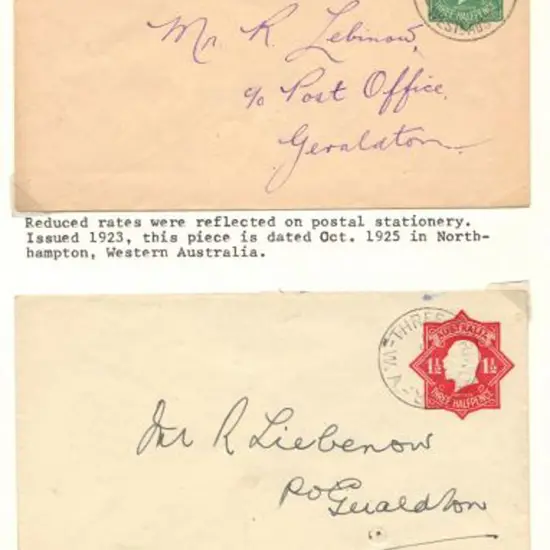 THREE HALFPENCE
WEST. AUS
Mr R. Lebinow,
c/o Post Office
Geraldton.
Reduced rates were reflected on postal stationery.
Issued 1923, this piece is dated Oct. 1925 in North-
hampton, Western Australia.
THREE
W.A.
AUSTRALIA
1½ 1½
THREE HALFPENCE
Mr R Liebenow
PO Geraldton